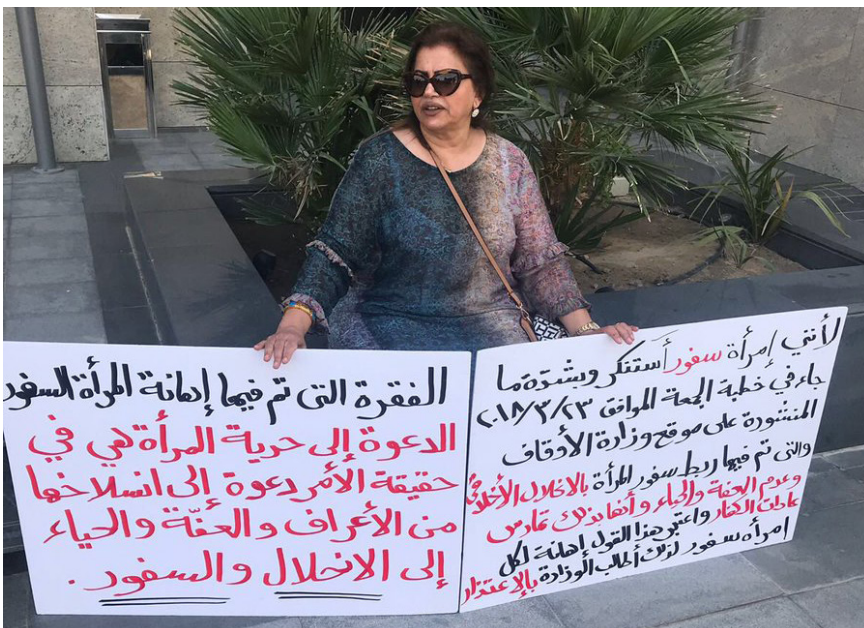 لأنني إمرأة سفور أستنكر وبشدة ما
جاء في خطبة الجمعة الموافق ٢٠١٨/٣/٢٣
المنشورة على موقع وزارة الأوقاف
والتى تم فيها ربط سفور المرأة بالانحلال الأخلاقي
وعدم العفة والحياء وأنها بذلك تمارس
عادات الكفار واعتبر هذا القول إهانة لكل
امرأه سفور لذلك أطالب الوزارة بالإعتذار
الفقرة التى تم فيها إهانة المرأة السفور
الدعوة إلى حرية المرأة هي في
حقيقة الأمر دعوة إلى انسلاخها
من الأعراف والعفّة والحياء
إلى الانحلال والسفور.